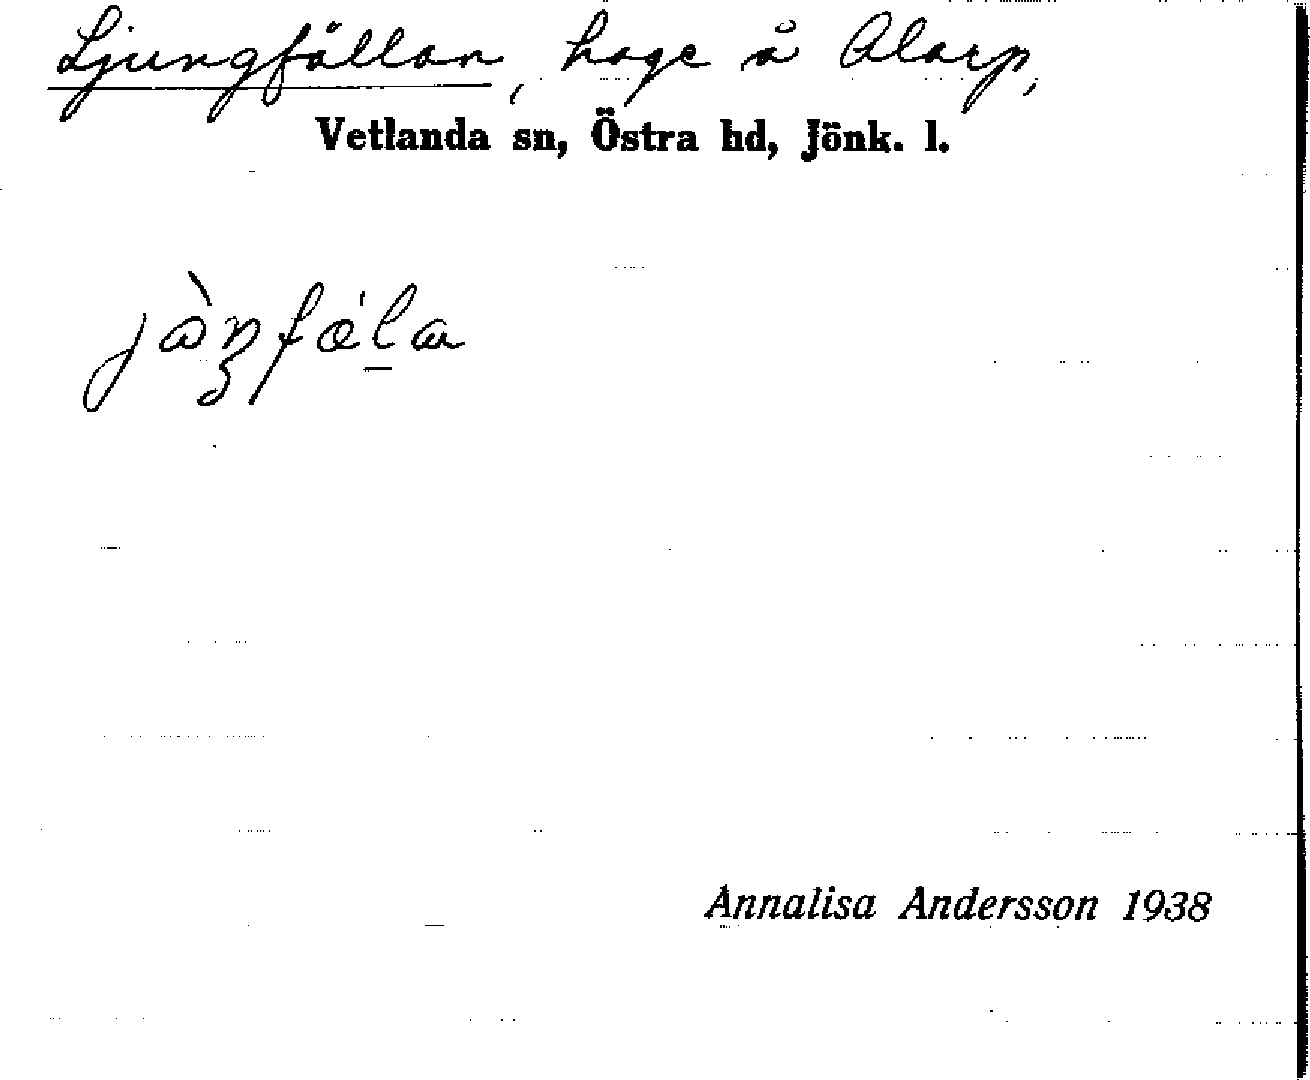 Ljungfållan, hage å Alarp,
Vetlanda sn, Östra hd, Jönk. l.
Annalisa Andersson 1938